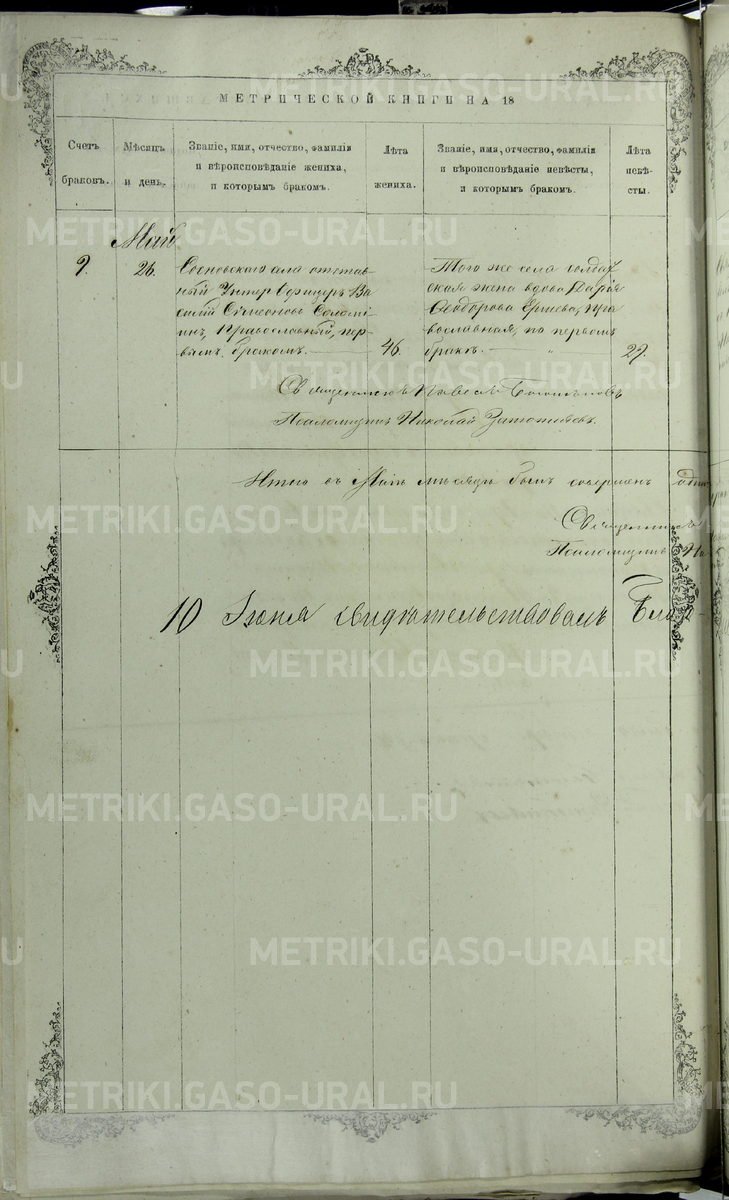 МЕТРИЧЕСКОЙ КНИГИ НА 18
Счетъ браковъ.
Мѣсяцъ и день.
Званіе, имя, отчество, фамилія
и вѣроисповѣданіе жениха,
и которымъ бракомъ.
Лѣта жениха.
Званіе, имя, отчество, фамилія
и вѣроисповѣданіе невѣсты,
и которымъ бракомъ.
Лѣта невѣ-
сты.
Май
9.
26.
Сосновскаго села отстав-
ный Унтер Офицеръ Ва-
силій Сѵмеоновъ Соломи-
инъ, Православный, пер-
вымъ бракомъ.
46.
Того же села солдат
ская жена вдова Дарія
Ѳеодорова Ершева, пра
вославная, по первомъ
бракѣ.
29.
Священникъ Павелъ
Псаломщикъ Николай
Итого въ Маѣ мѣсяцѣ былъ совершен
Священникъ
Псаломщикъ Ни
10 Іюня свидѣтельствовалъ Бла-
METRIKI.GASO-URAL.RU